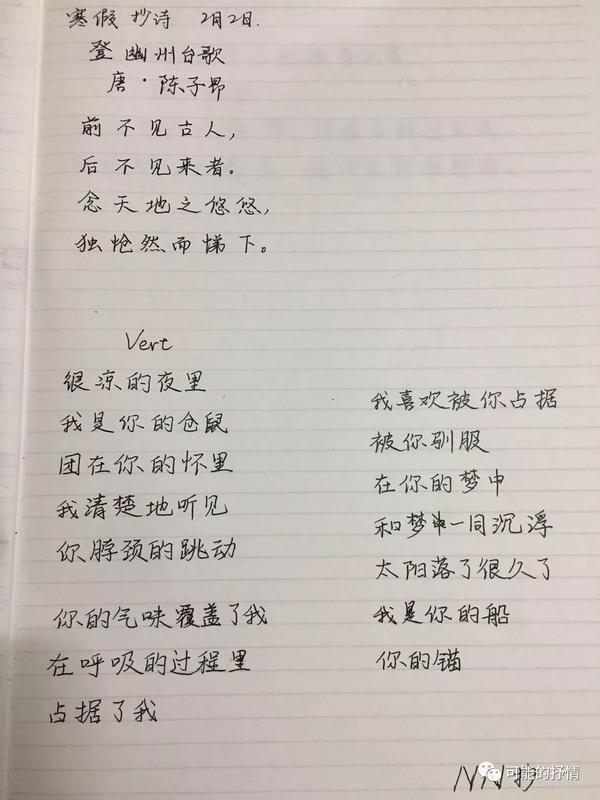 寒假抄诗 2月2日.
登幽州台歌
唐·陈子昂
前不见古人,
后不见来者。
念天地之悠悠,
独怆然而悌下。
Vert
很凉的夜里
我是你的仓鼠
团在你的怀里
我清楚地听见
你脖颈的跳动
你的气味覆盖了我
在呼吸的过程里
占据了我
我喜欢被你占据
被你驯服
在你的梦中
和梦中一同沉浮
太阳落了很久了
我是你的船
你的锚
NN抄
可能的抒情